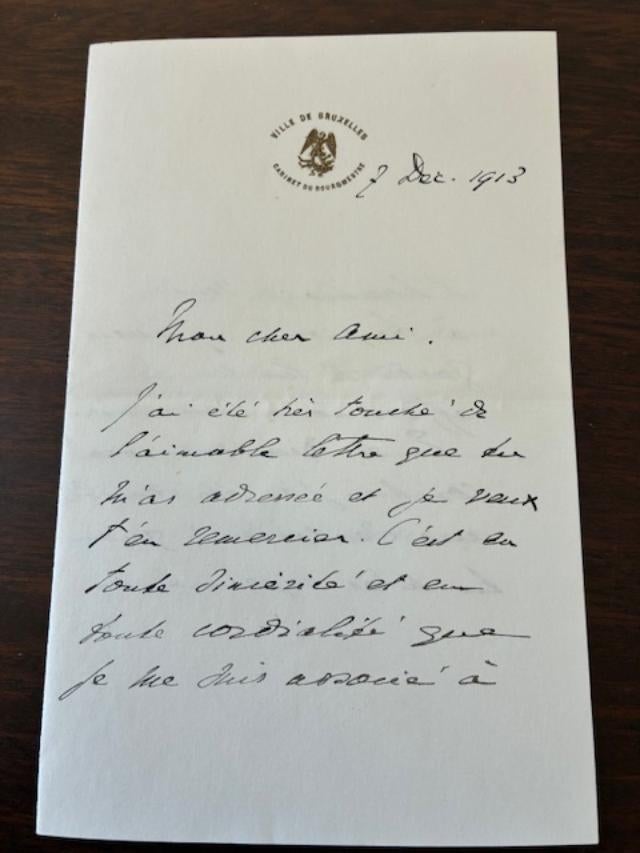 VILLE DE BRUXELLES
CABINET DU BOURGMESTRE
7 Dec. 1913
Mon cher Ami.
J'ai été très touché de
l'aimable lettre que tu
m'as adressée et je veux
t'en remercier. C'est en
toute sincérité et en
toute cordialité que
je me suis associé à